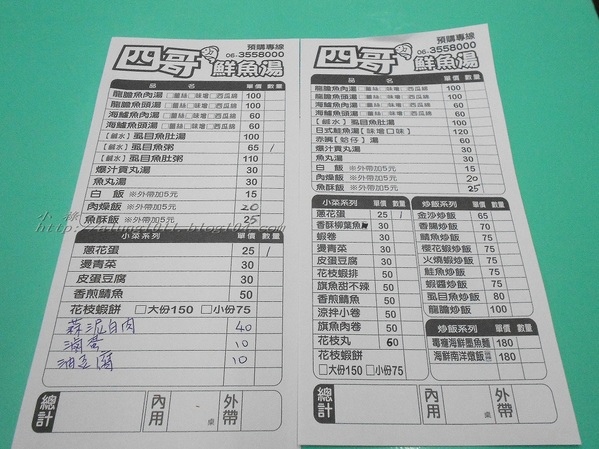 四哥 鮮魚湯
預購專線
06-3558000
品 名 單價 數量
龍膽魚肉湯 □薑絲 □味噌 □西瓜綿 100
龍膽魚頭湯 □薑絲 □味噌 □西瓜綿 100
海鱸魚肉湯 □薑絲 □味噌 □西瓜綿 60
海鱸魚頭湯 □薑絲 □味噌 □西瓜綿 60
【鹹水】虱目魚肚湯 100
【鹹水】虱目魚粥 65 /
【鹹水】虱目魚肚粥 110
爆汁貢丸湯 30
魚丸湯 30
白 飯 ※外帶加5元
肉燥飯 ※外帶加5元 20
魚酥飯 ※外帶加5元 25
小菜系列 單價 數量
蔥花蛋 25 /
燙青菜 30
皮蛋豆腐 30
香煎鯖魚 50
花枝蝦餅 □大份150 □小份75
蒜泥白肉 40
滷蛋 10
油豆腐 10
總計 內用 桌 外帶
四哥 鮮魚湯
預購專線
06-3558000
品 名 單價 數量
龍膽魚肉湯 □薑絲 □味噌 □西瓜綿 100
龍膽魚頭湯 □薑絲 □味噌 □西瓜綿 100
海鱸魚肉湯 □薑絲 □味噌 □西瓜綿 60
海鱸魚頭湯 □薑絲 □味噌 □西瓜綿 60
【鹹水】虱目魚肚湯 100
日式鮭魚湯【味噌口味】 120
赤嘴【蛤仔】湯 60
爆汁貢丸湯 30
魚丸湯 30
白 飯 ※外帶加5元
肉燥飯 ※外帶加5元 20
魚酥飯 ※外帶加5元 25
小菜系列 單價 數量
蔥花蛋 25 /
香酥柳葉魚 30
蝦卷 30
燙青菜 30
皮蛋豆腐 30
花枝蝦排 50
旗魚甜不辣 50
香煎鯖魚 50
涼拌小卷 50
旗魚肉卷 50
花枝丸 60
花枝蝦餅
□大份150 □小份75
炒飯系列 單價 數量
金沙炒飯 65
香腸炒飯 70
鯖魚炒飯 75
櫻花蝦炒飯 75
火燒蝦炒飯 75
鮭魚炒飯 75
蝦醬炒飯 75
虱目魚炒飯 80
龍膽炒飯 100
炒飯系列 單價 數量
海鮮墨魚麵 180
海鮮南洋燉飯 180
總計 內用 桌 外帶